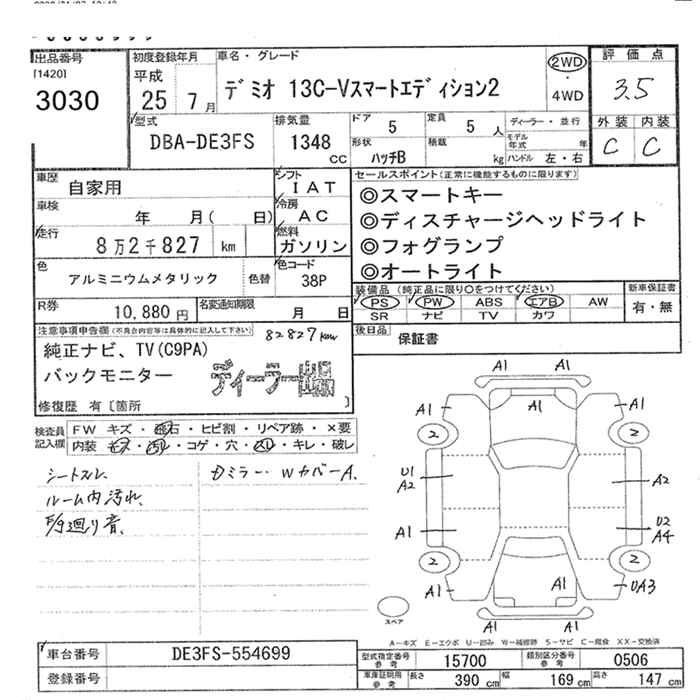 出品番号
[1420]
3030
初度登録年月
平成
25年7月
車名・グレード
デミオ 13C-Vスマートエディション2
2WD
4WD
評価点
3.5
型式
DBA-DE3FS
排気量
1348
cc
ドア
5
形状
ハッチB
定員
5人
積載
kg
ディーラー・並行
モデル年式 年
ハンドル 左・右
外装 内装
C C
車歴
自家用
車検
年 月( 日)
走行
8万2千827 km
シフト
IAT
冷房
AC
燃料
ガソリン
色
アルミニウムメタリック
色替
色コード
38P
R券
10,880円
名変通知期限
月 日
セールスポイント(正常に機能するものに限ります)
◎スマートキー
◎ディスチャージヘッドライト
◎フォグランプ
◎オートライト
装備品(純正品に限り○をつけてください)
PS PW ABS エアB AW
SR ナビ TV カワ
新車保証書
有・無
後日品
保証書
注意事項申告欄(不具合内容等は具体的に記入して下さい)
82827km
純正ナビ、TV(C9PA)
バックモニター
ディーラー出品
修復歴 有〔箇所 〕
検査員記入欄
FW キズ・飛石・ヒビ割・リペア跡・×要
内装・キズ・汚れ・コゲ・穴・スレ・キレ・破レ
シートスレ
ルーム内汚れ
F/9廻り音
Dミラー・WカバーA.
A1 A1
A1 A1 A1
2 2
U1
A2 A2
A1 U2
A4
2 2
A1 A1 UA3
A1 A1
スペア
A-キズ E-エクボ U-凹み W-補修跡 S-サビ C-腐食 XX-交換済
車台番号
DE3FS-554699
登録番号
型式指定番号 参考
15700
類別区分番号 参考
0506
車庫証明用 参考
長さ 390cm 幅 169cm 高さ 147cm